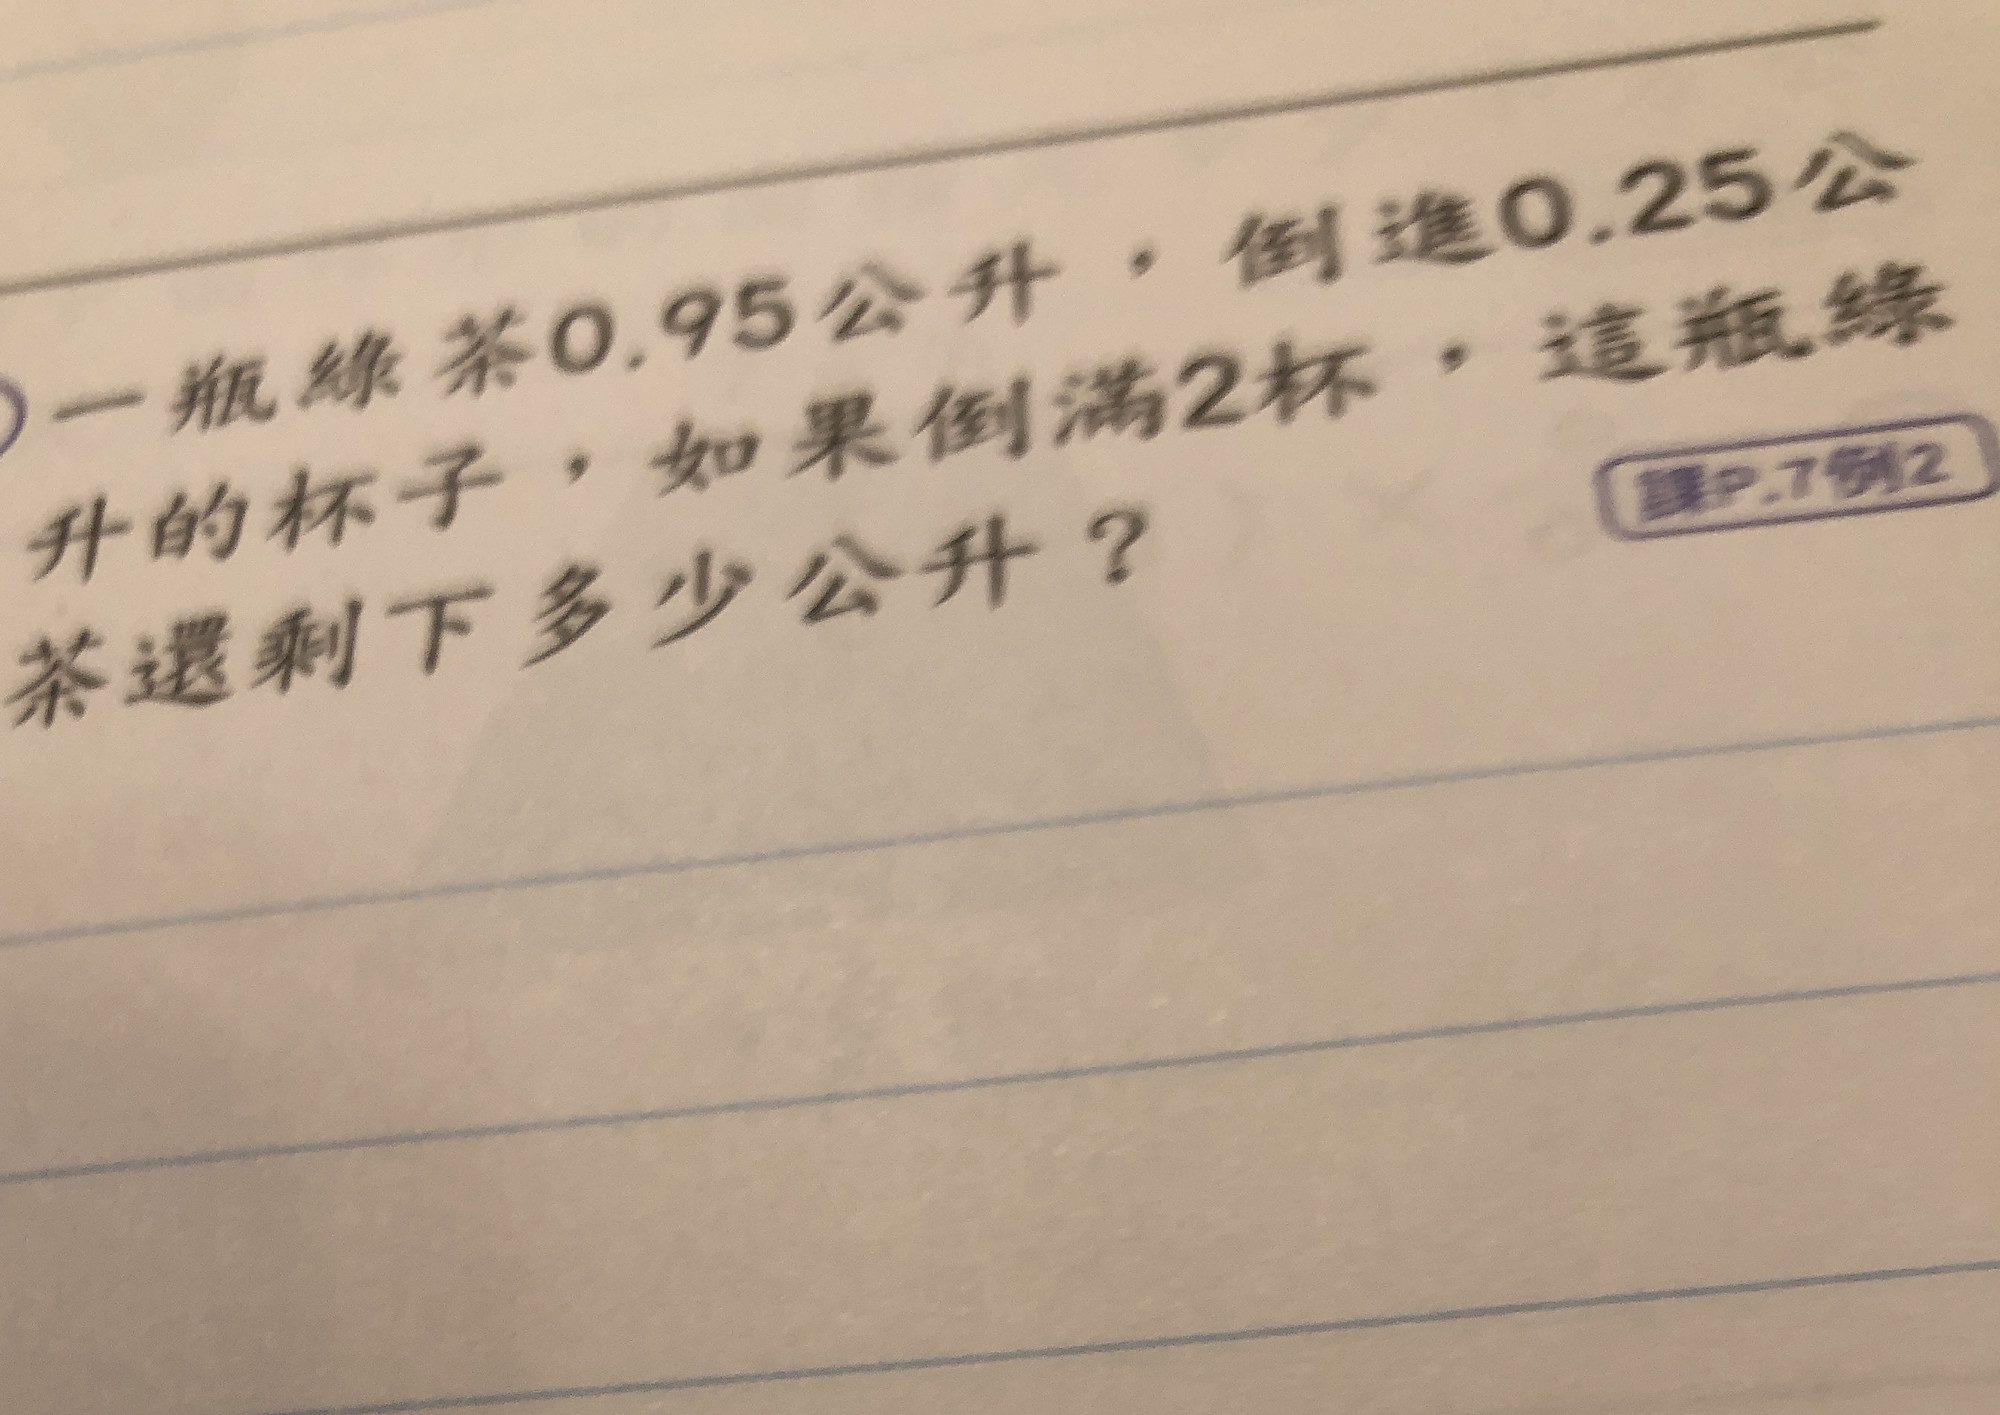 一瓶綠茶0.95公升，倒進0.25公
升的杯子，如果倒滿2杯，這瓶綠
茶還剩下多少公升？
課P.7例2